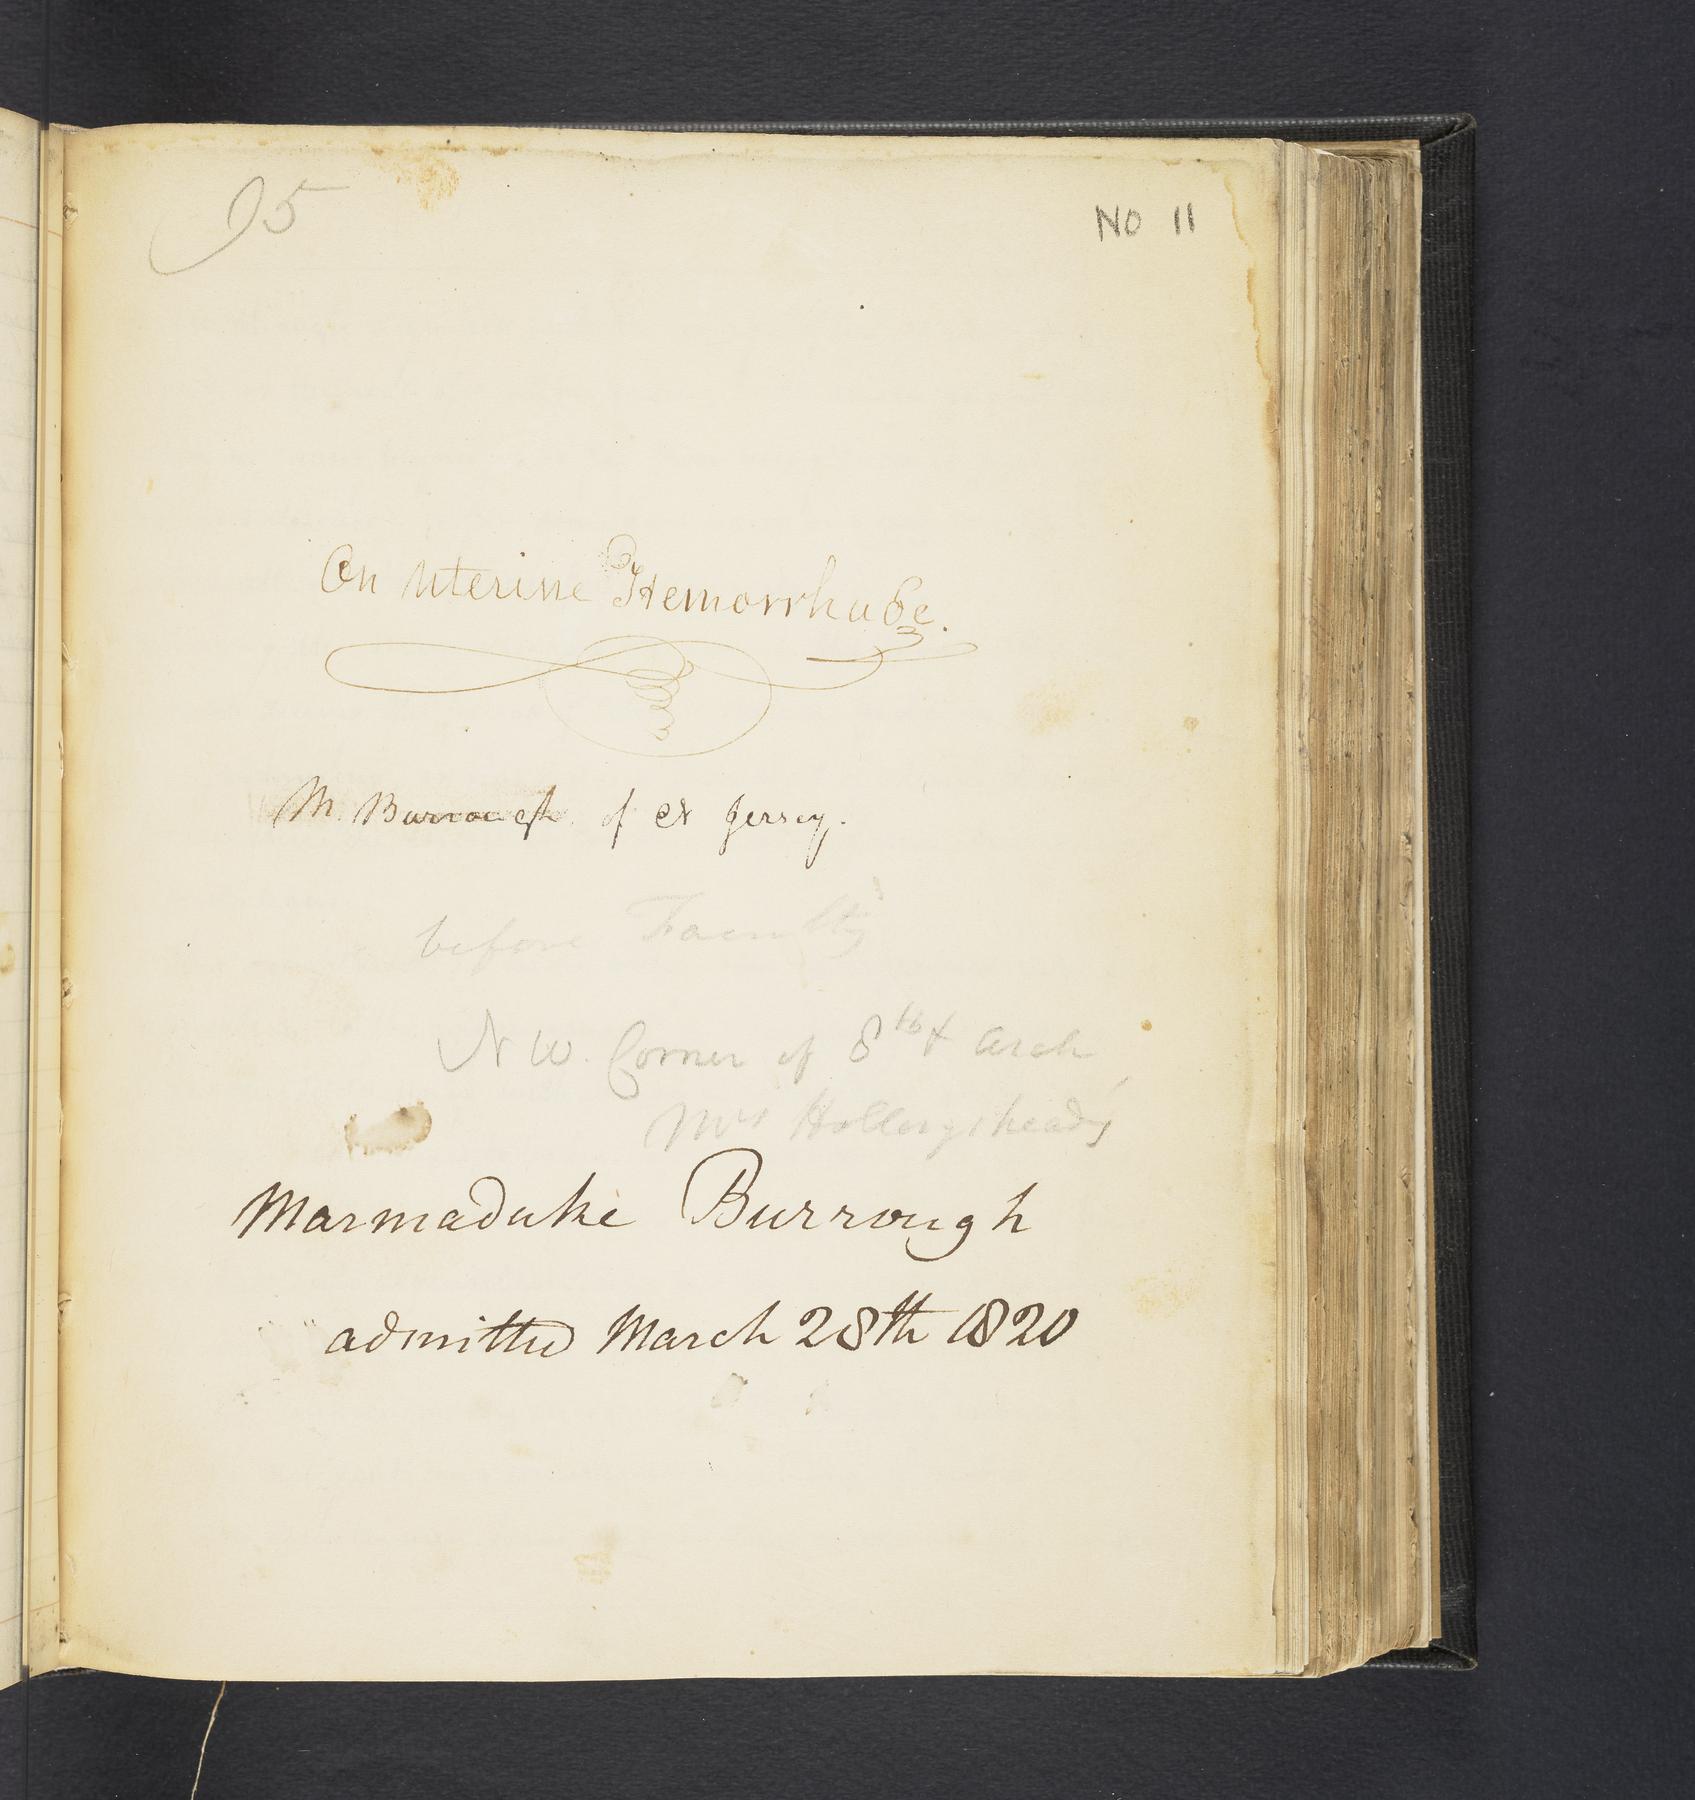 95
NO 11
On Uterine Hemorrhage.
M. Burrough of N Jersey.
before Faculty
N W. Corner of 8th & Arch
Mrs Hollingshead's
Marmaduke Burrough
admitted March 28th 1820